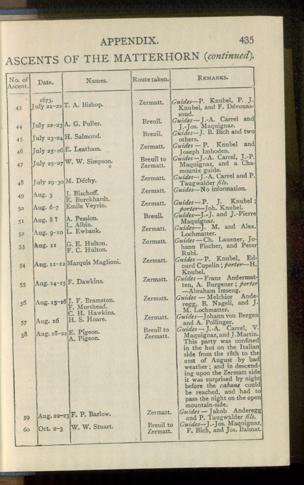 APPENDIX. 435
ASCENTS OF THE MATTERHORN (continued).
No. of Ascent. Date. Names. Route taken. REMARKS.
1873.
43 July 21-22 T. A. Bishop. Zermatt. Guides—P. Knubel, P. J.
Knubel, and F. Dévouas-
soud.
44 July 22-23 A. G. Fuller. Breuil. Guides—J.-A. Carrel and
J.-Jos. Maquignaz.
45 July 23-24 H. Salmond. Breuil. Guides—J. B. Bich and two
others.
46 July 25-26 E. Leatham. Zermatt. Guides—P. Knubel and
Joseph Imboden.
47 July 25-27 W. W. Simpson. Breuil to Zermatt. Guides—J.-A. Carrel, J.-P.
Maquignaz, and a Cha-
mounix guide.
48 July 29-30 M. Déchy. Zermatt. Guides—J.-A. Carrel and P.
Taugwalder fils.
49 Aug. 3 J. Bischoff. Zermatt. Guides—No information.
E. Burckhardt.
50 Aug. 6-7 Emile Veyrin. Zermatt. Guides—P. J. Knubel;
porter—Joh. Knubel.
51 Aug. 8 ? A. Pession. Breuil. Guides—J.-J. and J.-Pierre
L. Albin. Maquignaz.
52 Aug. 9-10 L. Ewbank. Zermatt. Guides—J. M. and Alex.
Lochmatter.
53 Aug. 11 G. E. Hulton. Zermatt. Guides—Ch. Lauener, Jo-
F. C. Hulton. hann Fischer, and Peter
Rubi.
54 Aug. 11-12 Marquis Maglioni. Zermatt. Guides—P. Knubel, Ed-
ouard Cupelin; porter—H.
Knubel.
55 Aug. 14-15 F. Dawkins. Zermatt. Guides—Franz Andermat-
ten, A. Burgener; porter
—Abraham Imseng.
56 Aug. 15-16 J. F. Bramston. Zermatt. Guides—Melchior Ande-
F. Morshead. regg, B. Nageli, and J.
C. H. Hawkins. M. Lochmatter.
57 Aug. 16 H. S. Hoare. Zermatt. Guides—Johann von Bergen
and A. Pollinger.
58 Aug. 18-20 E. Pigeon. Breuil to Guides—J.-A. Carrel, V.
A. Pigeon. Zermatt. Maquignaz, and J. Martin.
This party was confined
in the hut on the Italian
side from the 18th to the
21st of August by bad
weather; and in descend-
ing upon the Zermatt side
it was surprised by night
before the cabane could
be reached, and had to
pass the night on the open
mountain-side.
59 Aug. 22-23 F. P. Barlow. Zermatt. Guides—Jakob Anderegg
and P. Taugwalder fils.
60 Oct. 2-3 W. W. Stuart. Breuil to Guides—J.-Jos. Maquignaz,
Zermatt. F. Bich, and Jos. Balmat.